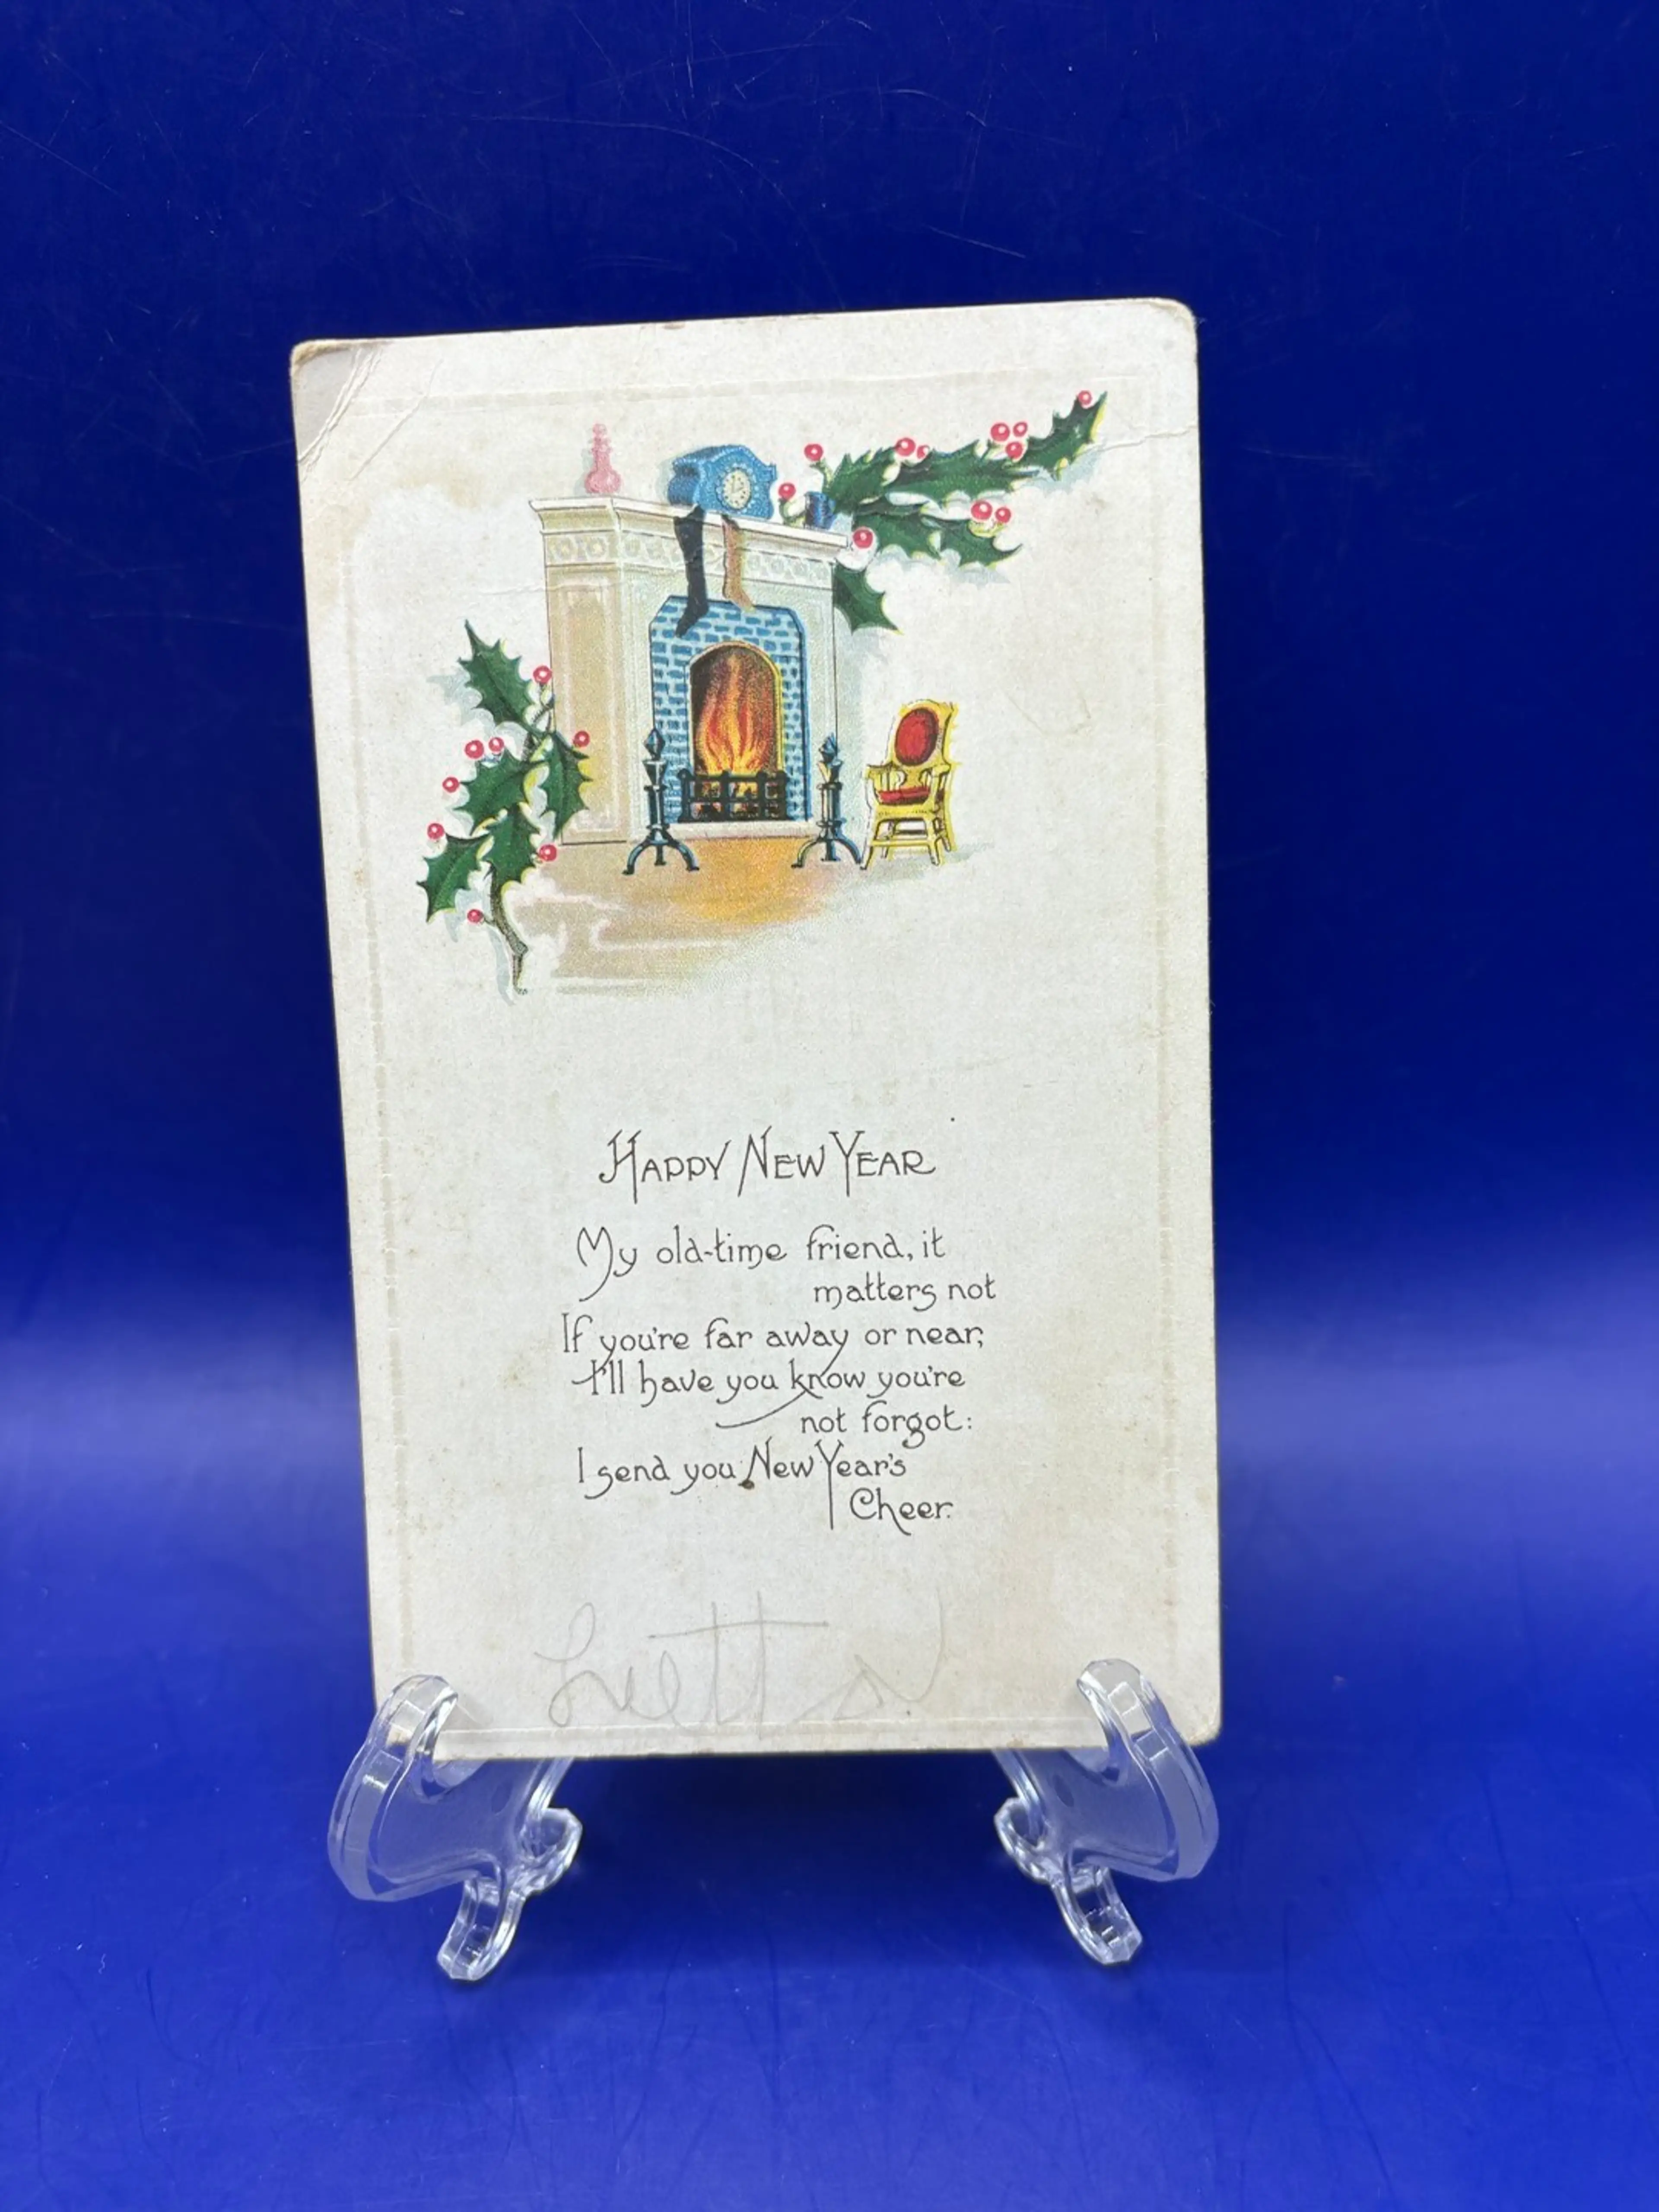 Happy New Year
My old-time friend, it
matters not
If you're far away or near;
I'll have you know you're
not forgot:
I send you New Year's
Cheer.